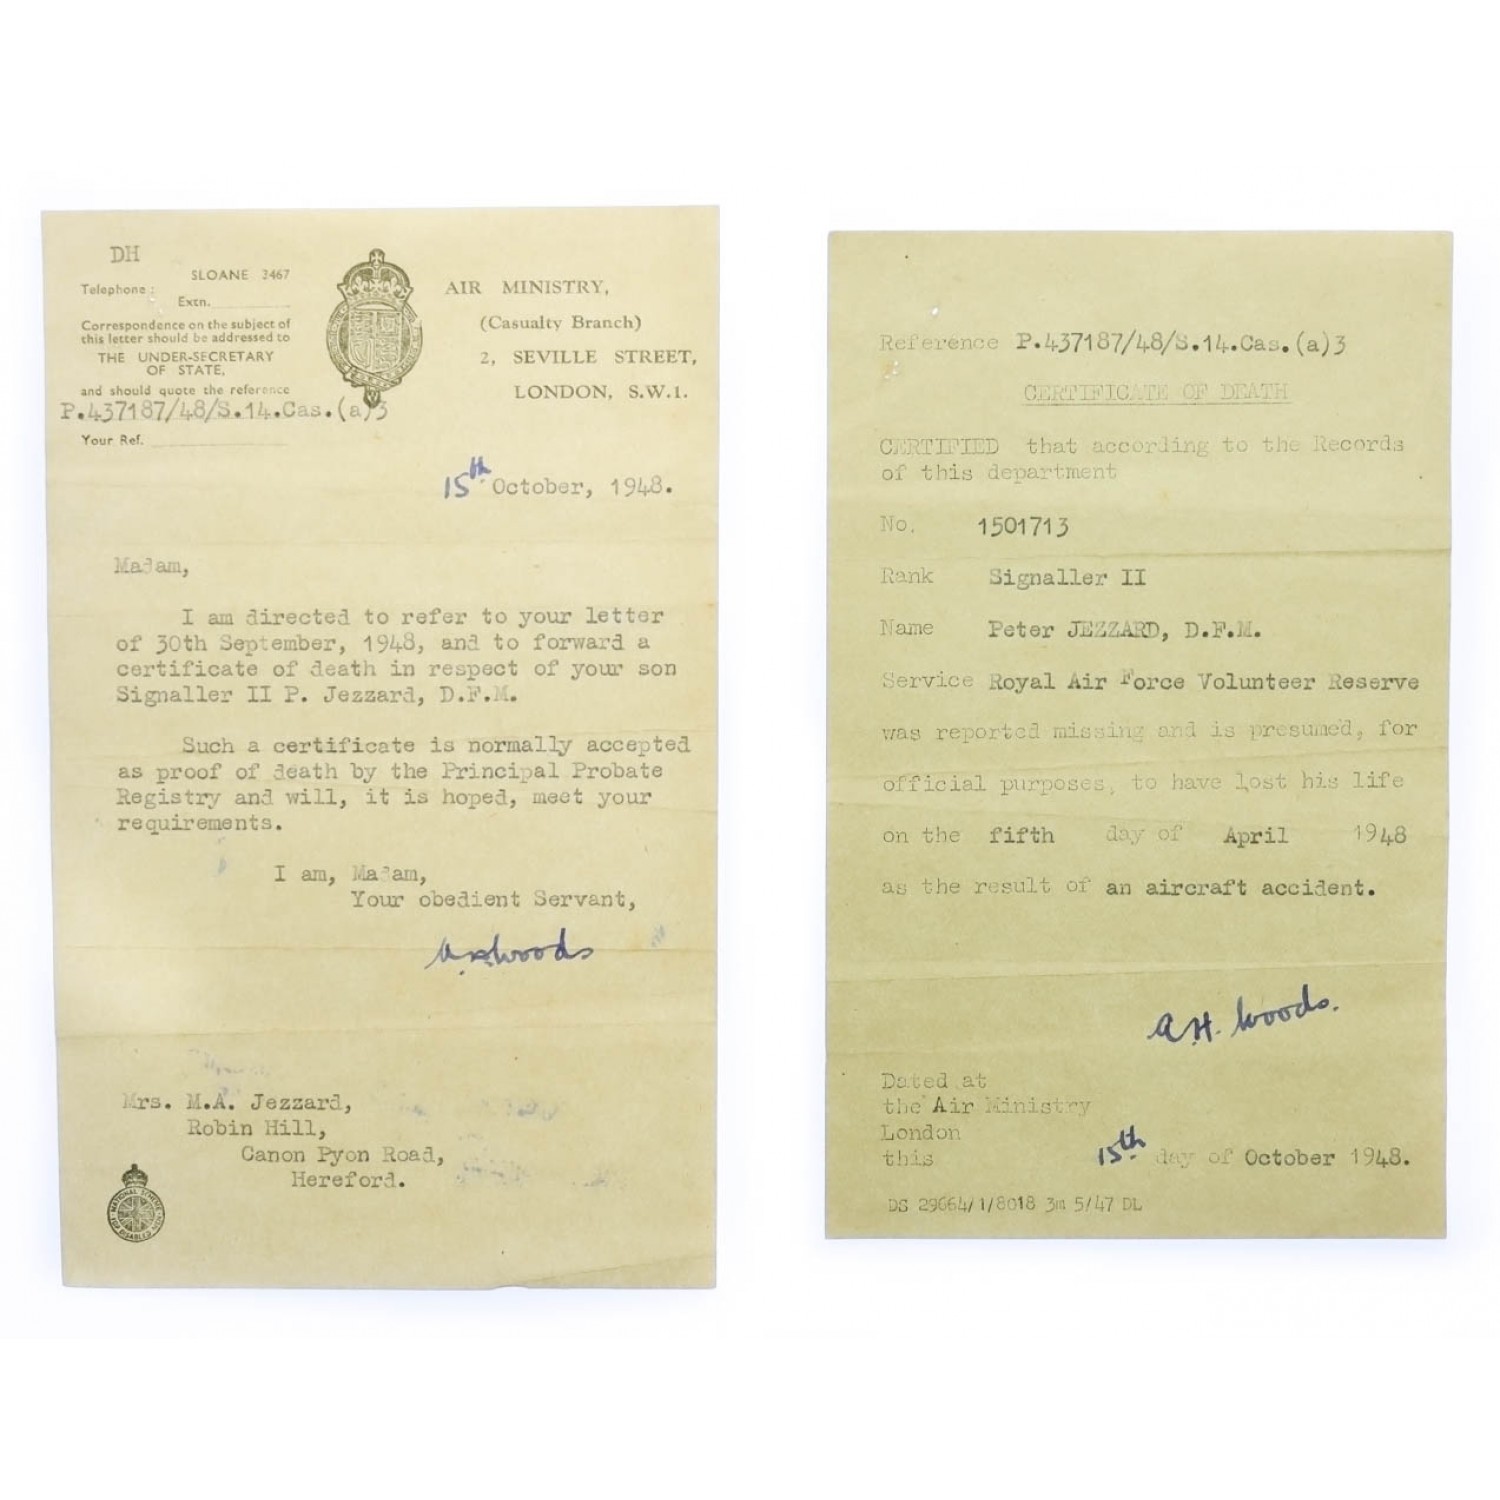 DH
SLOANE 3467
Telephone :
Extn.
Correspondence on the subject of
this letter should be addressed to
THE UNDER-SECRETARY
OF STATE,
and should quote the reference
P.437187/48/S.14.Cas.(a)3
Your Ref.
AIR MINISTRY,
(Casualty Branch)
2, SEVILLE STREET,
LONDON, S.W.1.
15th October, 1948.
Madam,
I am directed to refer to your letter
of 30th September, 1948, and to forward a
certificate of death in respect of your son
Signaller II P. Jezzard, D.F.M.
Such a certificate is normally accepted
as proof of death by the Principal Probate
Registry and will, it is hoped, meet your
requirements.
I am, Madam,
Your obedient Servant,
A.H. Woods
Mrs. M.A. Jezzard,
Robin Hill,
Canon Pyon Road,
Hereford.
NATIONAL SCHEME
FOR DISABLED MEN
Reference P.437187/48/S.14.Cas.(a)3
CERTIFICATE OF DEATH
CERTIFIED that according to the Records
of this department
No. 1501713
Rank Signaller II
Name Peter JEZZARD, D.F.M.
Service Royal Air Force Volunteer Reserve
was reported missing and is presumed, for
official purposes, to have lost his life
on the fifth day of April 1948
as the result of an aircraft accident.
A.H. Woods.
Dated at
the Air Ministry
London
this 15th day of October 1948.
DS 29664/1/8018 3m 5/47 DL